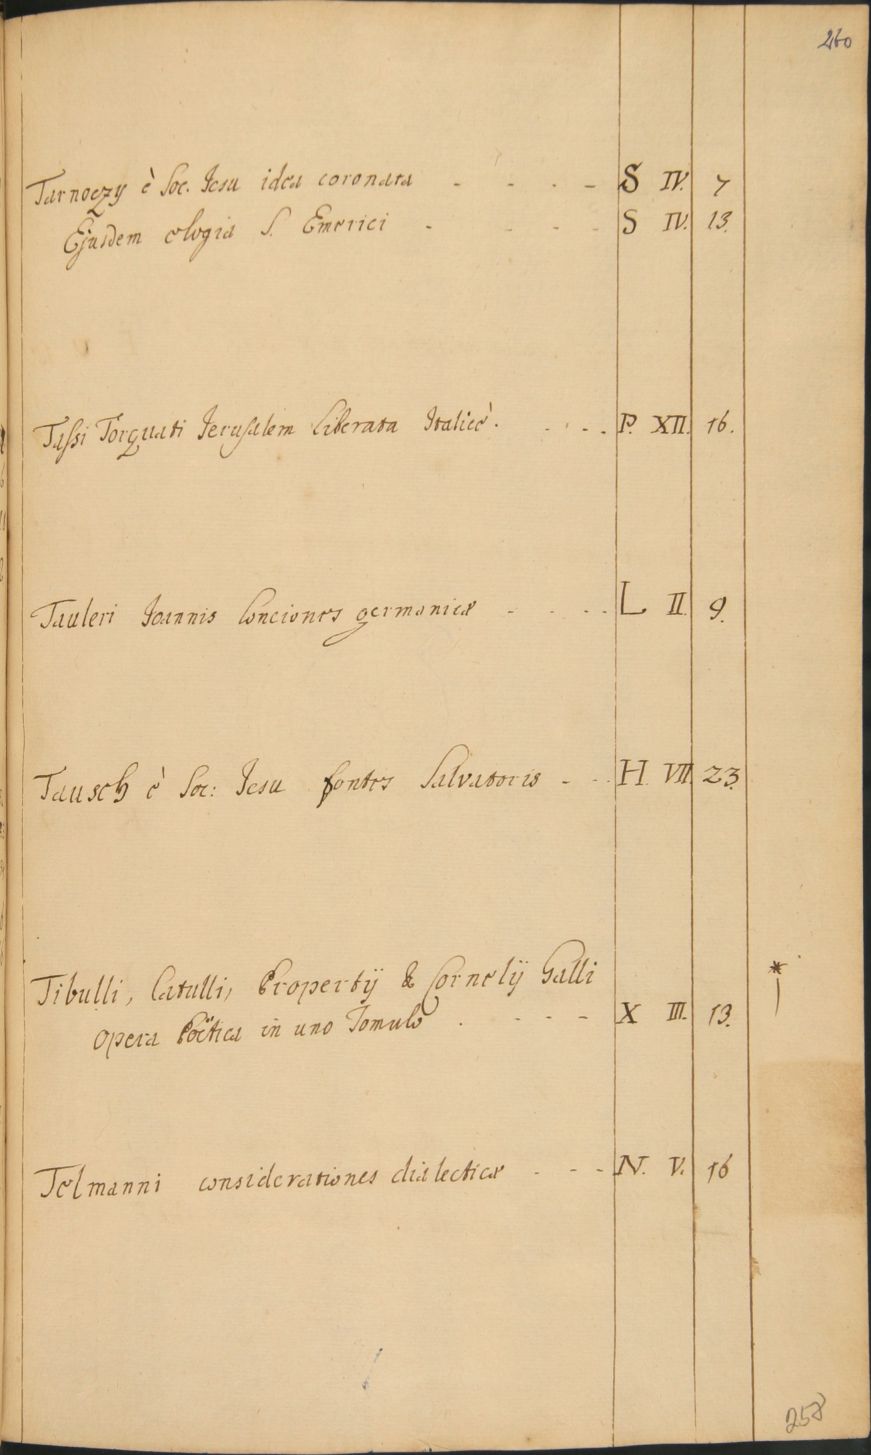 260
Tarnoczy è Soc. Iesu idea coronata - - - - S IV. 7
Ejusdem elogia S. Emerici - - - - S IV. 13.
Tassi Torquati Ierusalem Liberata Italicè. - - - P. XII. 16.
Tauleri Ioannis Conciones germanicæ - - - - L II. 9.
Tausch è Soc: Iesu fontes Salvatoris - - - H VII 23.
Tibulli, Catulli, Propertÿ & Cornelÿ Galli
Opera Poëtica in uno Tomulo . - - - X III. 13. *
Telmanni considerationes dialecticæ - - - N. V. 16
258